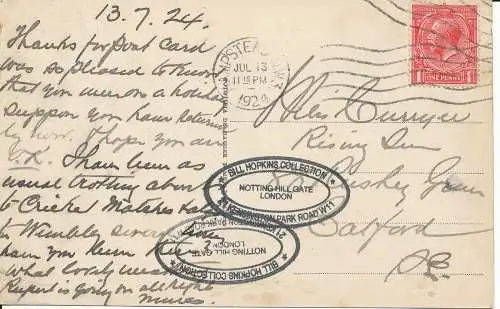 13.7.24.
Thanks for post card
was so pleased to know
that you were on a holiday
suppose you have returned
by now. I hope you are
O.K. I have been as
usual trotting about
to Cricket Matches
to Wembley several
have you been
what lovely
Rupert is going on all right
HAMPSTEAD N.W.3
JUL 13
11.15 PM
1924
ONE PENNY
Miss
Rising Sun
Rushey Green
Catford
S.E.
BILL HOPKINS COLLECTION
NOTTING HILL GATE
LONDON
KENSINGTON PARK ROAD W11
NOTTING HILL GATE
LONDON
BILL HOPKINS COLLECTION